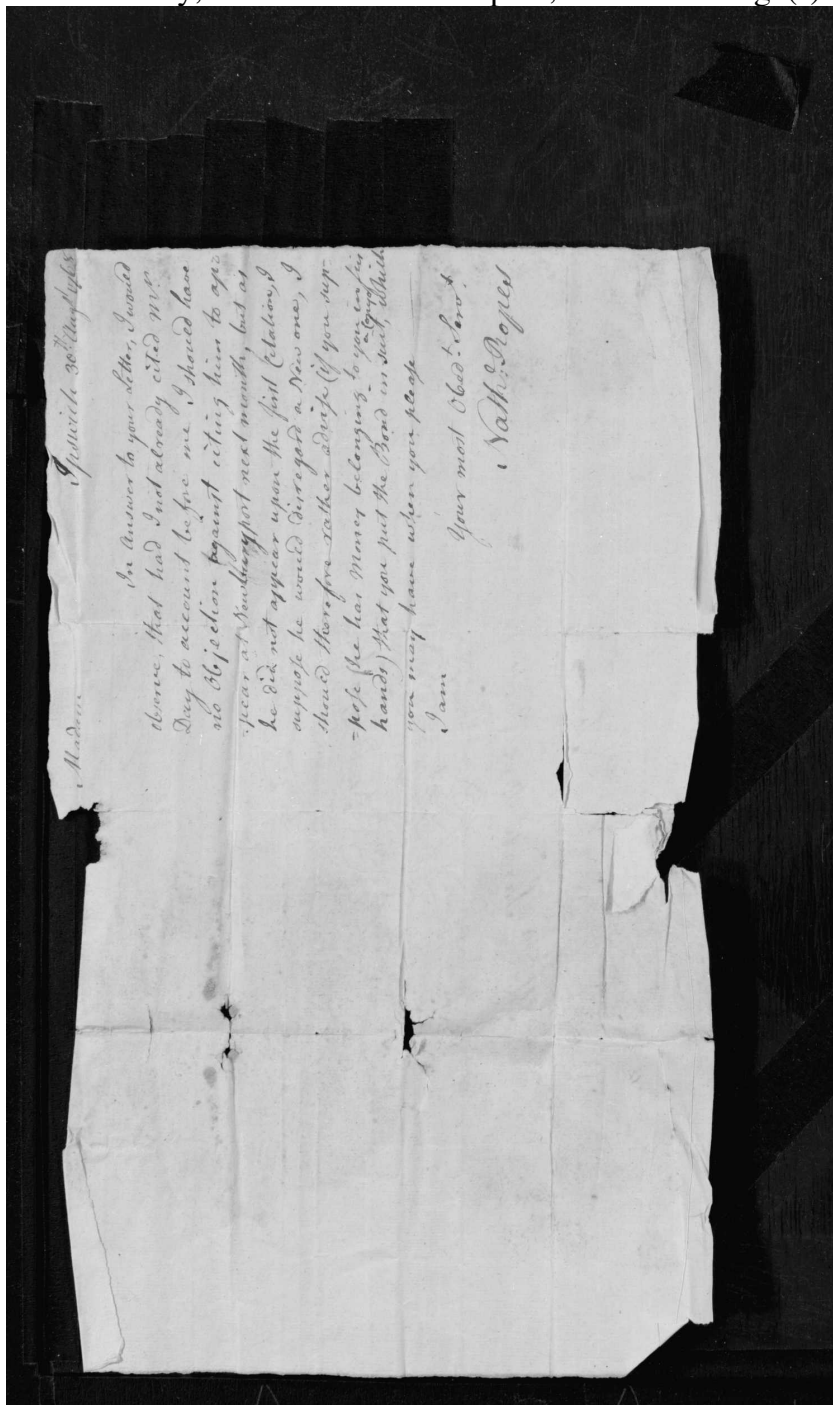 Ipswich 30th Augt 1768
Madam
In Answer to your Letter, I would
observe, that had I not already cited Mr.
Day to account before me, I should have
no Objection against citing him to ap-
-pear at Newburyport next month, but as
he did not appear upon the first Citation, I
suppose he would disregard a New one, I
should therefore rather advise (if you sup-
-pose he has Money belonging to you in his
hands) that you put the Bond in suit, a Copy Which
you may have when you please
I am
Your most Obedt. Servt.
Nathl. Ropes